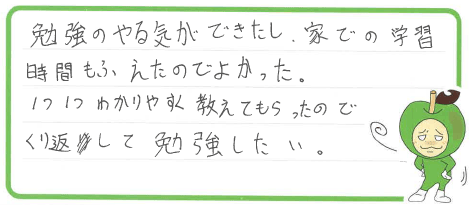 勉強のやる気ができたし、家での学習
時間もふえたのでよかった。
1つ1つわかりやすく教えてもらったので
くり返しして勉強したい。